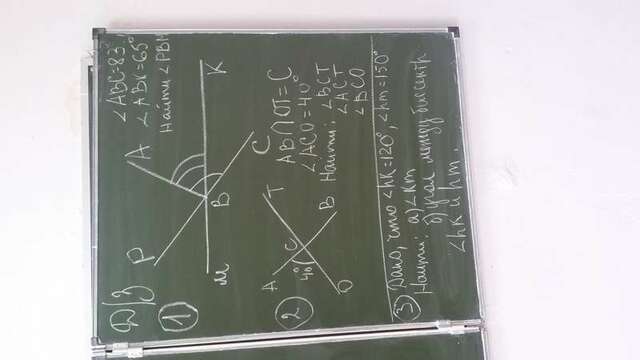 Д/З
∠ABC=83°
∠ABK=65°
Найти ∠PBM
①
P
A
M
B
K
C
②
A
T
C
40°
O
B
AB∩OT=C
∠ACO=40°
Найти: ∠BCT
∠ACT
∠BCO
③ Дано, что ∠hk=120°, ∠hm=150°
Найти: а)∠km
б) угол между биссектр
∠hk и hm.